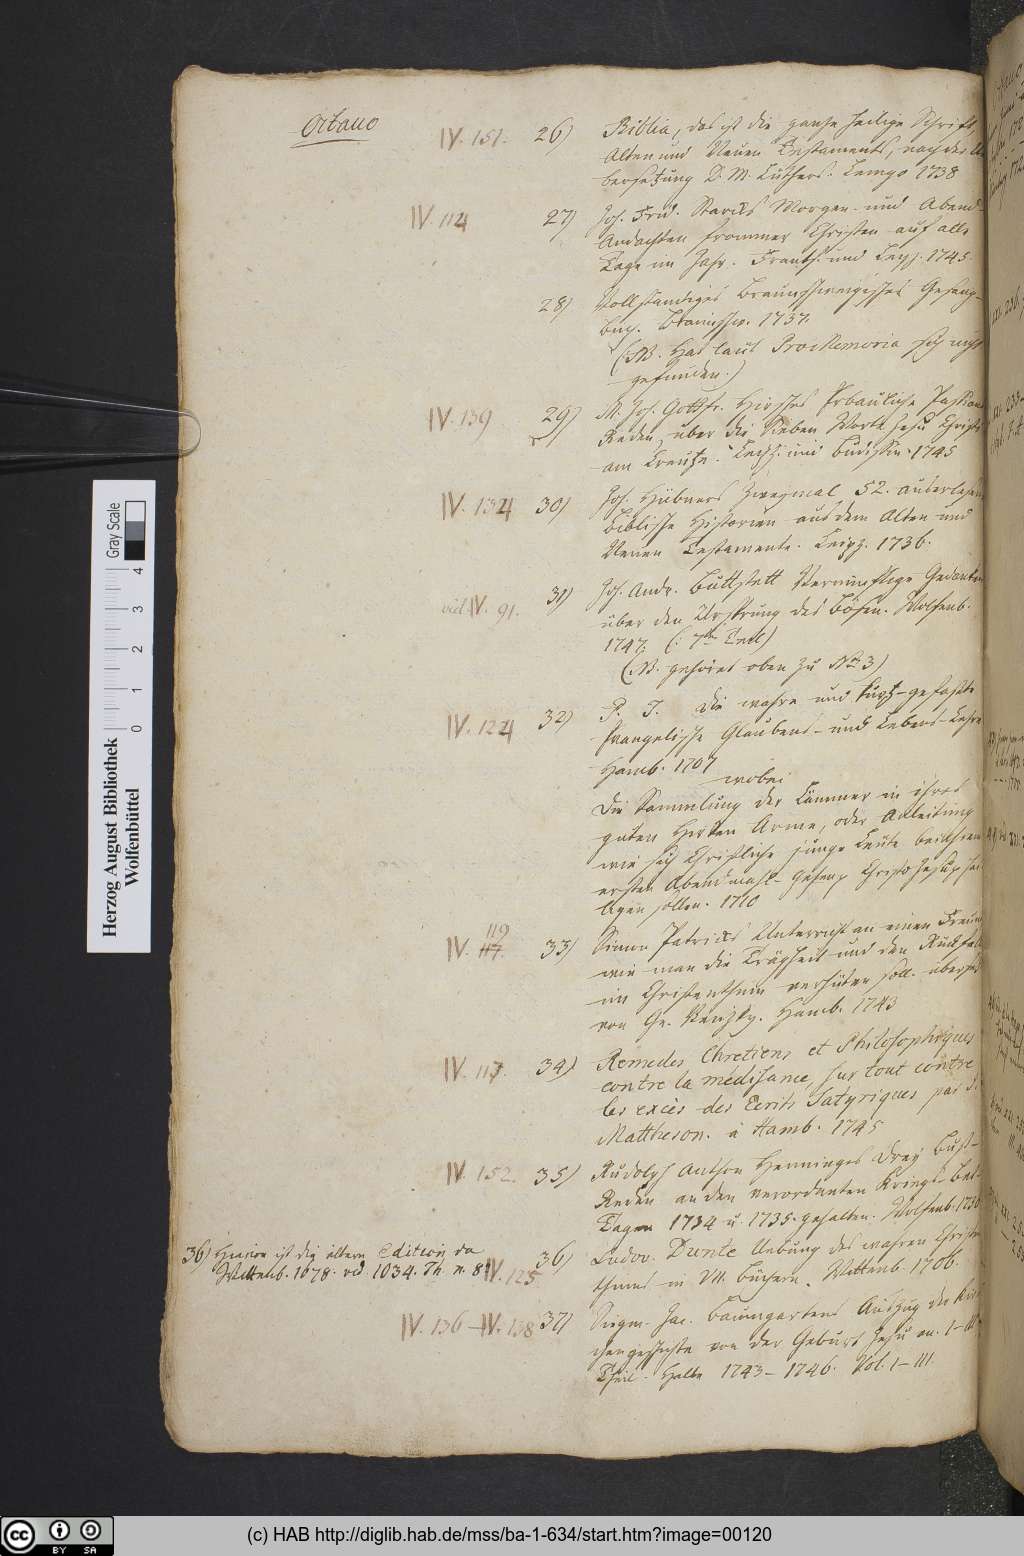 Octavo
IV. 151. 26) Biblia, das ist die ganze heilige Schrifft,
Alten und Neuen Testaments, nach der Ü-
bersetzung D. M. Luthers. Lemgo 1738
IV. 114 27) Joh. Frid. Starcks Morgen- und Abend-
Andachten frommer Christen auf alle
Tage im Jahr. Franckf. und Leipz. 1745.
28) Vollständiges Braunschweigisches Gesang-
buch. Braunschw. 1737.
(NB. Hat laut Pro Memoria sich nicht
gefunden.)
IV. 139 29) M. Joh. Gottfr. Hirsches Erbauliche Passions
Reden, über die sieben Worte Jesu Christi
am Creutze. Leipz. und Budissin. 1745
IV. 134 30) Joh. Hübners Zweymal 52. auserlesene
Biblische Historien aus dem Alten und
Neuen Testamente. Leipz. 1736.
vid. IV. 91. 31) Joh. Andr. Buttstett Vernünftige Gedancken
über den Ursprung des Bösen. Wolfenb.
1747. (: 7ter Theil)
(NB. gehöret oben zu No 3)
IV. 124 32) P. J. Die wahre und kurtz-gefaßte
Evangelische Glaubens- und Lebens-Lehre
Hamb. 1707
wobei
Die Sammlung der Lämmer in ihres
guten Hirten Arme, oder Anleitung
wie sich Christliche junge Leute bei ihrem
ersten Abendmahl-
sollen. 1710
119
IV. 117. 33) Simon Patricks Unterricht an einen Freund
wie man die Trägheit und den Rückfall
im Christenthum verhüten soll. übersetzt
von Ge. Venzky. Hamb. 1743
IV. 117. 34) Remedes Chretiens et Philosophiques
contre la médisance, sur tout contre
les excès des Ecrits Satyriques par J.
Mattheson. à Hamb. 1745
IV. 152. 35) Rudolph Anthon Henninges drey Buß-
Reden an den verordneten Kriegs- Bet-
Tagen 1734 u. 1735. gehalten. Wolfenb. 1736
36) Hiervon ist die ältere Edition da
Wittenb. 1678. vid 1034. Th. n. 8
IV. 125 36) Ludov. Dunte Uebung des wahren Christen
thums in VII. Büchern. Wittenb. 1706.
IV. 136–IV. 138 37) Siegm. Jac. Baumgartens Auszug der Kir-
chengeschichte von der Geburt Jesu an. I–III
Theil. Halle 1743–1746. Vol. I–III.
Gray Scale
0 1 2 3 4
Herzog August Bibliothek
Wolfenbüttel
cc BY SA
(c) HAB http://diglib.hab.de/mss/ba-1-634/start.htm?image=00120